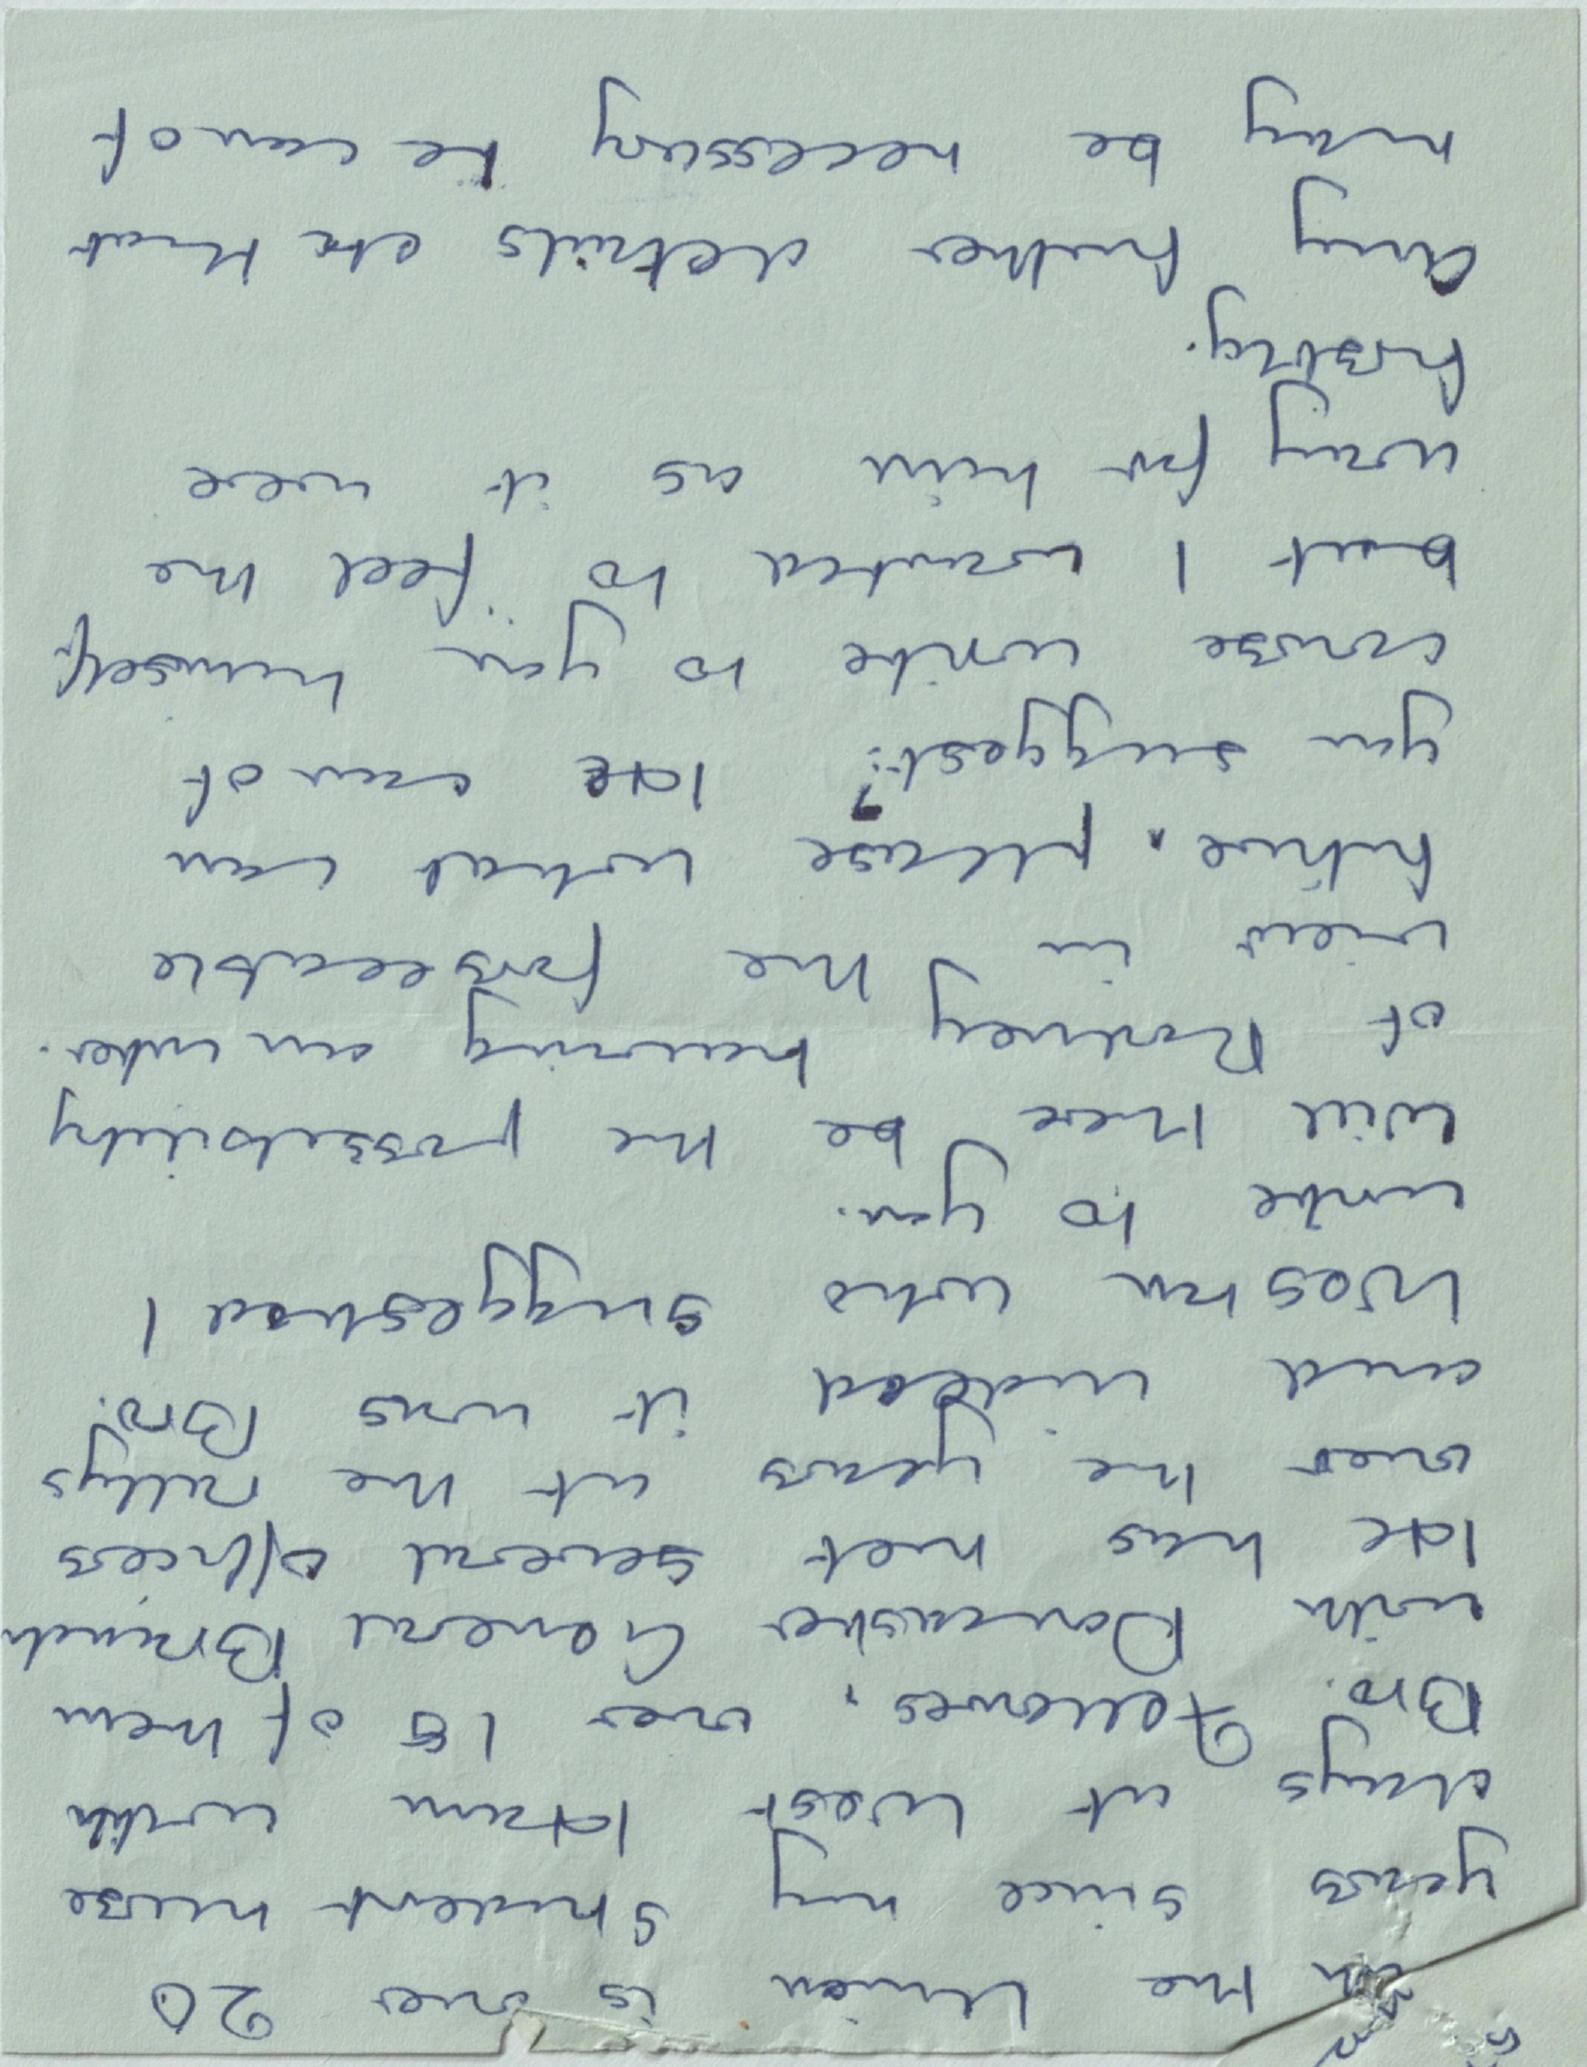 in the Union is over 20
years since my student nurse
days at West Ham with
Bro. Fellowes, over 18 of them
with Doncaster General Branch
He has met several officers
over the years at the rallys
and indeed it was Bro.
Weston who suggested I
write to you.
Will there be the possibility
of Rodney having an inter-
view in the forseeable
future, please what can
you suggest? He can of
course write to you himself
but I wanted to feel the
way for him as it were
firstly.
Any further details etc that
may be necessary he can of